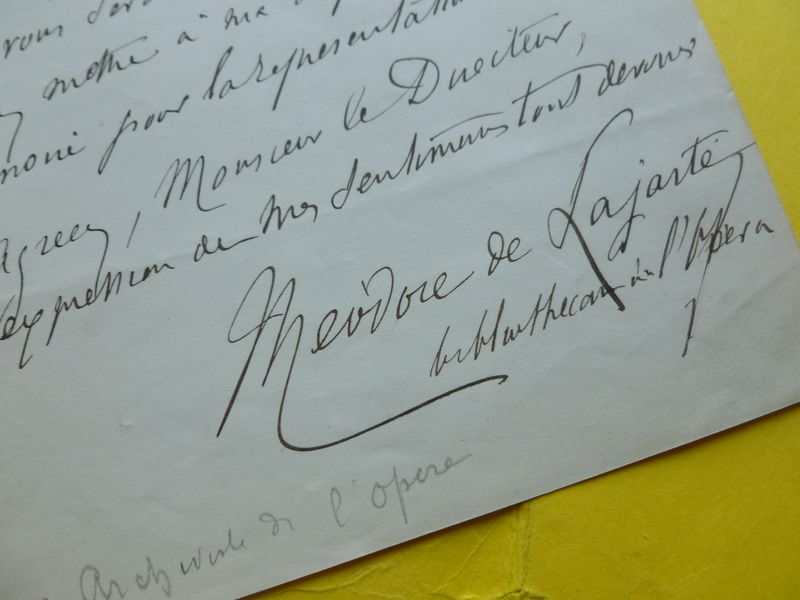 vous
mettre à ma
pour la représentation
Agréez, Monsieur le Directeur,
l'expression de mes sentiments tout dévoués
Théodore de Lajarte
bibliothécaire de l'Opéra
Archiviste de l'opera